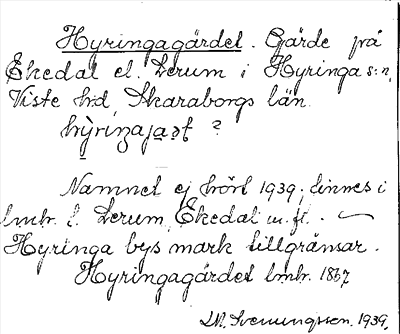 Hyringagärdet. Gärde på
Ekedal el. Lerum i Hyringa s:n,
Viste hd, Skaraborgs län.
?
Namnet ej hört 1939; finnes i
lmhr. t. Lerum, Ekedal m. fl.
Hyringa bys mark tillgränsar.
Hyringagärdet lmhr. 1867
Svenungsson. 1939.